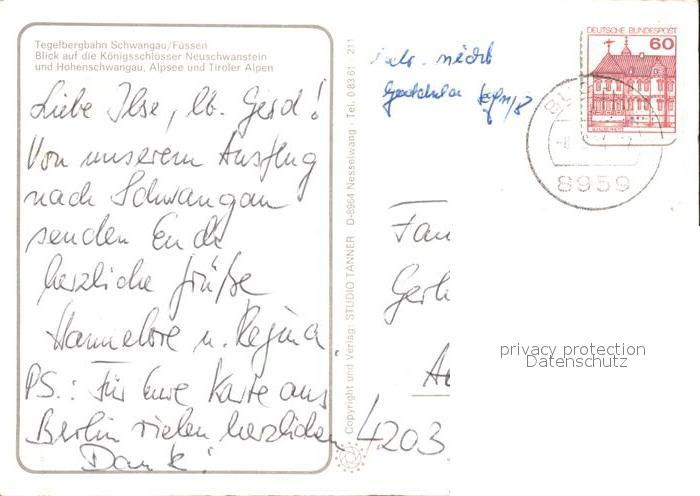 Tegelbergbahn Schwangau/Füssen
Blick auf die Königsschlösser Neuschwanstein
und Hohenschwangau, Alpsee und Tiroler Alpen
Liebe Ilse, lb. Gerd!
Von unserem Ausflug
nach Schwangau
senden Euch
herzliche Grüße
Hannelore u. Regina
PS.: Für Eure Karte aus
Berlin vielen herzlichen
Dank!
Copyright und Verlag: STUDIO TANNER D-8964 Nesselwang · Tel. 08361 211
nicht
DEUTSCHE BUNDESPOST
60
8959
Fam
Gerh
4203
privacy protection
Datenschutz